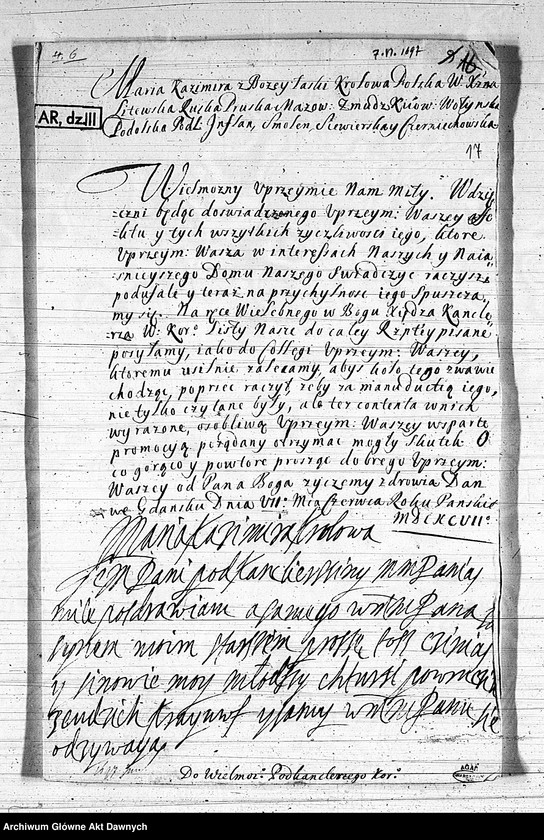 4. 6
7. VI. 1697
Maria Kazimira z Bozey łaski Krolowa Polska W. Xzna
Litewska Ruska Pruska Mazow: Zmudz Kiiow: Wołynska
AR, dz III
Podolska Podl: Inflan, Smolen, Siewierska y Czerniechowska
17
Wielmozny Uprzeymie Nam Miły. Wdzię
czni będąc doswiadczonego Uprzeym: Waszey
y tych wszytkich zyczliwosci iego, ktore
Uprzeym: Wasza w interessach Naszych y Naia
snieyszego Domu Naszego swiadczyc raczysz
podufale y teraz na przychylnosc iego spuszcza
my się. Na ręce Wielebnego w Bogu Xiędza Kancle
rza W: Kor: Listy Nasze do całey Rzptey pisane
posyłamy, iako do Collegi Uprzeym: Waszey,
ktoremu usilnie zalecamy, abys koło tego zwawie
chodząc, poprzec raczył, zeby za manuductią iego,
nie tylko czytane były, ale tez contenta w nich
wyrazone, osobliwą Uprzeym: Waszey wsparte
promocyą, pożądany otrzymac mogły skutek O
co gorąco y powtore prosząc dobrego Uprzeym:
Waszey od Pana Boga zyczemy zdrowia Dan
we Gdansku Dnia VII: Mca Czerwca Roku Panskie
MDCXCVII:
Maria Kazimira Krolowa
Jem Pani podkanclerziny m m Panią
mile pozdrawiam a samego Pana
synem moim starszem proszę
y sinowie moy młodszy
odzywaią
Do Wielmoz: Podkanclerzego Kor:
AGAD
Archiwum Główne Akt Dawnych